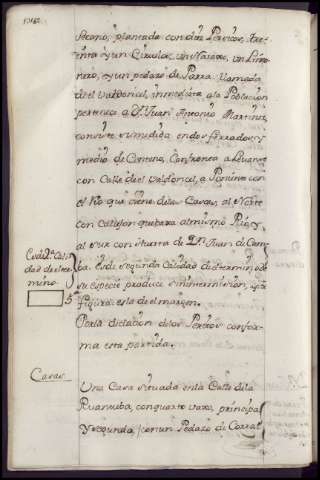 Secano, plantada con dos Perales, tre-
inta y un Ciruelos, un Naranjo, un Limo-
nero, y un pedazo de Parra, llamada
del Valdoncel, inmediata a la Poblacion
pertenece a Dn. Juan Antonio Martinez,
consiste su medida en dos ferrados y
medio de Centeno, Confronta a Levante
con Calle de el Valdoncel, a Poniente con
el Rio que viene de las Cascas, al Norte
con Callejon que baxa al mismo Rio, y
al sur con Huerta de Dn. Juan de Cam-
ba. es de segunda Calidad de termino de
su especie produce sin intermision, y su
figura es la de el margen.
Por la declaracion de los Peritos confor-
ma esta partida.
Casas.
Una Casa situada en la Calle de la
Ruanueba, con quarto vaxo, principal
y segundo, con un Pedazo de Corral